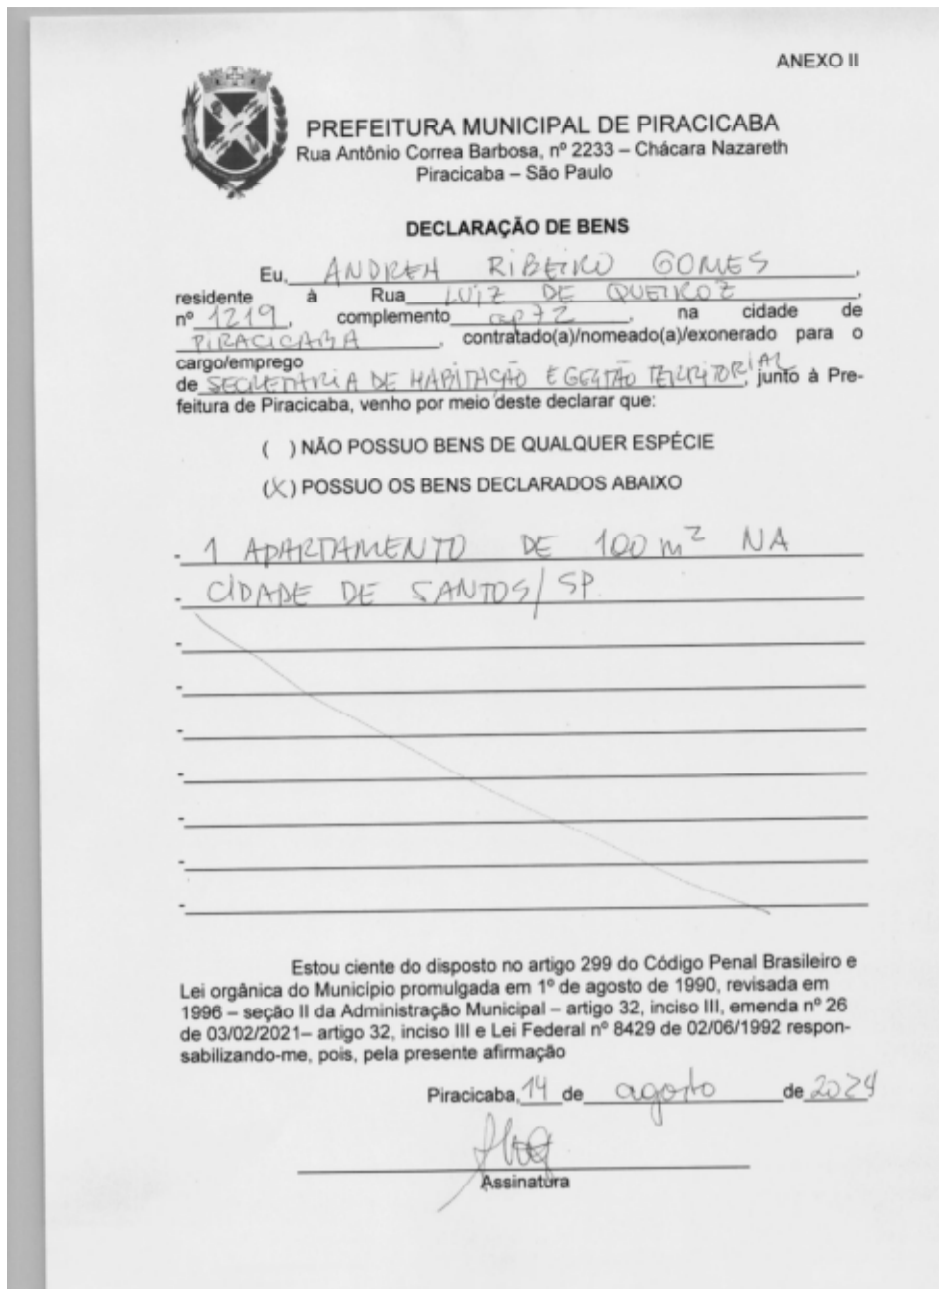 ANEXO II
PREFEITURA MUNICIPAL DE PIRACICABA
Rua Antônio Correa Barbosa, nº 2233 – Chácara Nazareth
Piracicaba – São Paulo
DECLARAÇÃO DE BENS
Eu, ANDREA RIBEIRO GOMES,
residente à Rua LUIZ DE QUEIROZ,
nº 1219, complemento ap 72, na cidade de
PIRACICABA, contratado(a)/nomeado(a)/exonerado para o
cargo/emprego
de SECRETÁRIA DE HABITAÇÃO E GESTÃO TERRITORIAL, junto à Pre-
feitura de Piracicaba, venho por meio deste declarar que:
( ) NÃO POSSUO BENS DE QUALQUER ESPÉCIE
(X) POSSUO OS BENS DECLARADOS ABAIXO
- 1 APARTAMENTO DE 100 m² NA
- CIDADE DE SANTOS/SP
-
-
-
-
-
-
-
Estou ciente do disposto no artigo 299 do Código Penal Brasileiro e
Lei orgânica do Município promulgada em 1º de agosto de 1990, revisada em
1996 – seção II da Administração Municipal – artigo 32, inciso III, emenda nº 26
de 03/02/2021– artigo 32, inciso III e Lei Federal nº 8429 de 02/06/1992 respon-
sabilizando-me, pois, pela presente afirmação
Piracicaba, 14 de agosto de 2024
Assinatura